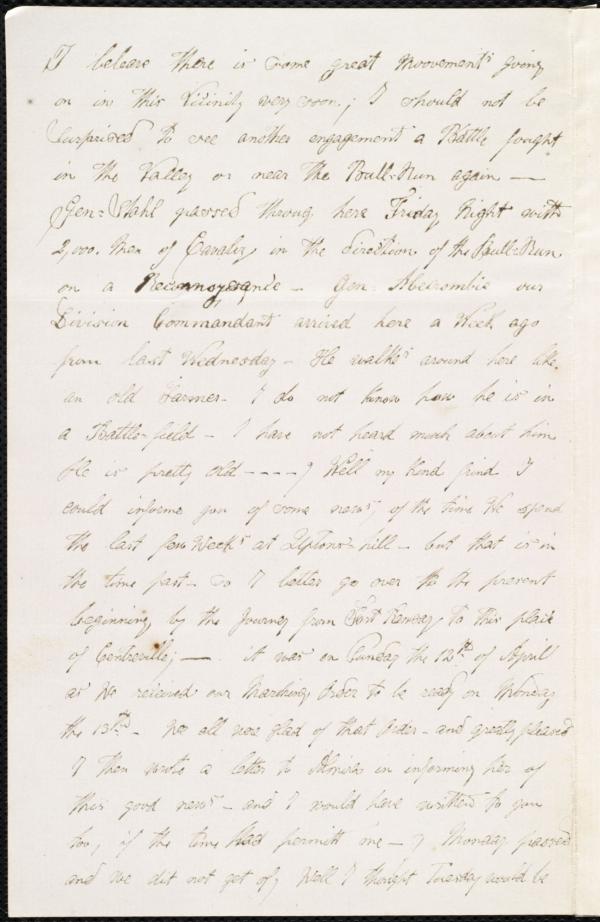 I beleave there is some great Moovements going
on in this Vicinity very soon; I should not be
Surprised to see another engagement a Battle fought
in the Valley or near the Bull-Run again —
Gen: Stahl passed throug here Friday Night with
2,000. Men of Cavalry in the direction of the Bull-Run
on a — Gen: Abercrombie our
Division Commandant arrived here a Week ago
from last Wednesday — He walks around here like
an old Farmer — I do not know how he is in
a Battle-field — I have not heard much about him
He is pretty old - - - - ; Well my kind frind I
could informe you of some news, of the time We spend
the last few Weeks at Uptons-hill — but that is in
the time past — so I better go over to the present
beginning by the Journey from Fort to this place
of Centreville; — it was on Sunday the 12th of April
as We recieved our Marching Order to be ready on Monday
the 13th — We all were glad of that Order — and greatly pleased
I then wrote a letter to Almira in informing her of
this good news — and I would have written to you
too, if the time had permitt me — ; Monday passed
and we dit not get of; Well I thought Tuesday would be